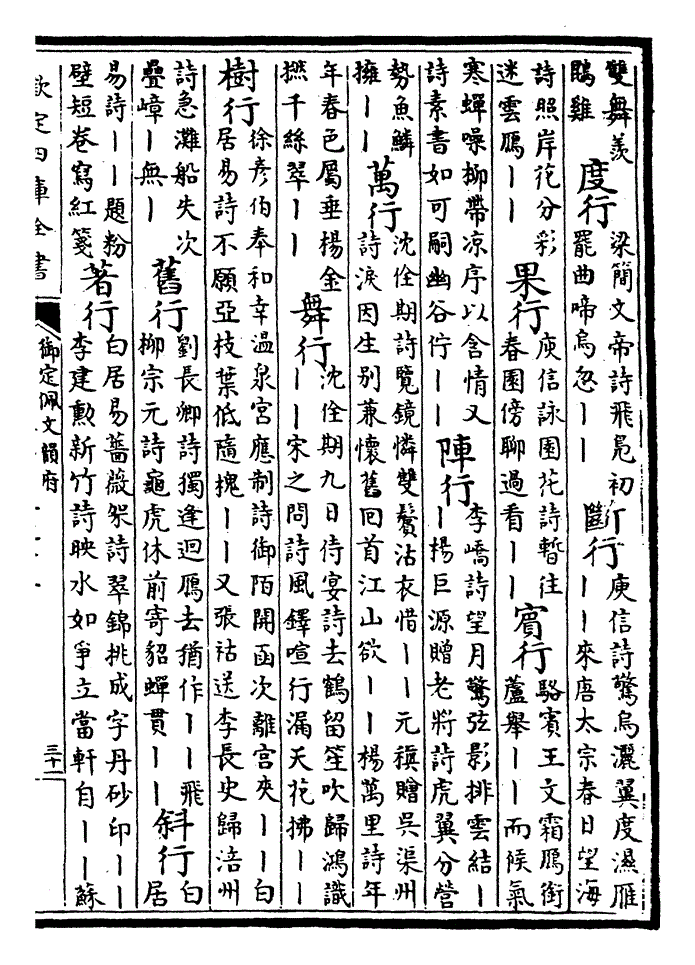 雙舞羨
鵾雞
度行
梁簡文帝詩飛鳧初
罷曲啼烏忽丨丨
斷行
庾信詩驚烏灑翼度濕雁
丨丨來唐太宗春日望海
詩照岸花分彩
迷雲鴈丨丨
果行
庾信詠園花詩暫往
春園傍聊過看丨丨
賓行
駱賓王文霜鴈銜
蘆舉丨丨而候氣
寒蟬噪柳帶凉序以含情又
詩素書如可嗣幽谷佇丨丨
陣行
李嶠詩望月驚弦影排雲結丨
丨楊巨源贈老將詩虎翼分營
勢魚鱗
擁丨丨
萬行
沈佺期詩覽鏡憐雙鬢沾衣惜丨丨元稹贈吳渠州
詩淚因生別兼懷舊回首江山欲丨丨楊萬里詩年
年春色屬垂楊金
撚千絲翠丨丨
舞行
沈佺期九日侍宴詩去鶴留笙吹歸鴻識
丨丨宋之問詩風鐸喧行漏天花拂丨丨
樹行
徐彥伯奉和幸溫泉宮應制詩御陌開函次離宮夾丨丨白
居易詩不願亞枝葉低隨槐丨丨又張祜送李長史歸涪州
詩急灘船失次
疊嶂丨無丨
舊行
劉長卿詩獨逢迴鴈去猶作丨丨飛
柳宗元詩龜虎休前寄貂蟬貫丨丨
斜行
白
居
易詩丨丨題粉
壁短卷寫紅箋
著行
白居易薔薇架詩翠錦挑成字丹砂印丨丨
李建勲新竹詩映水如爭立當軒自丨丨蘇
欽定四庫全書
御定佩文韻府
三十二